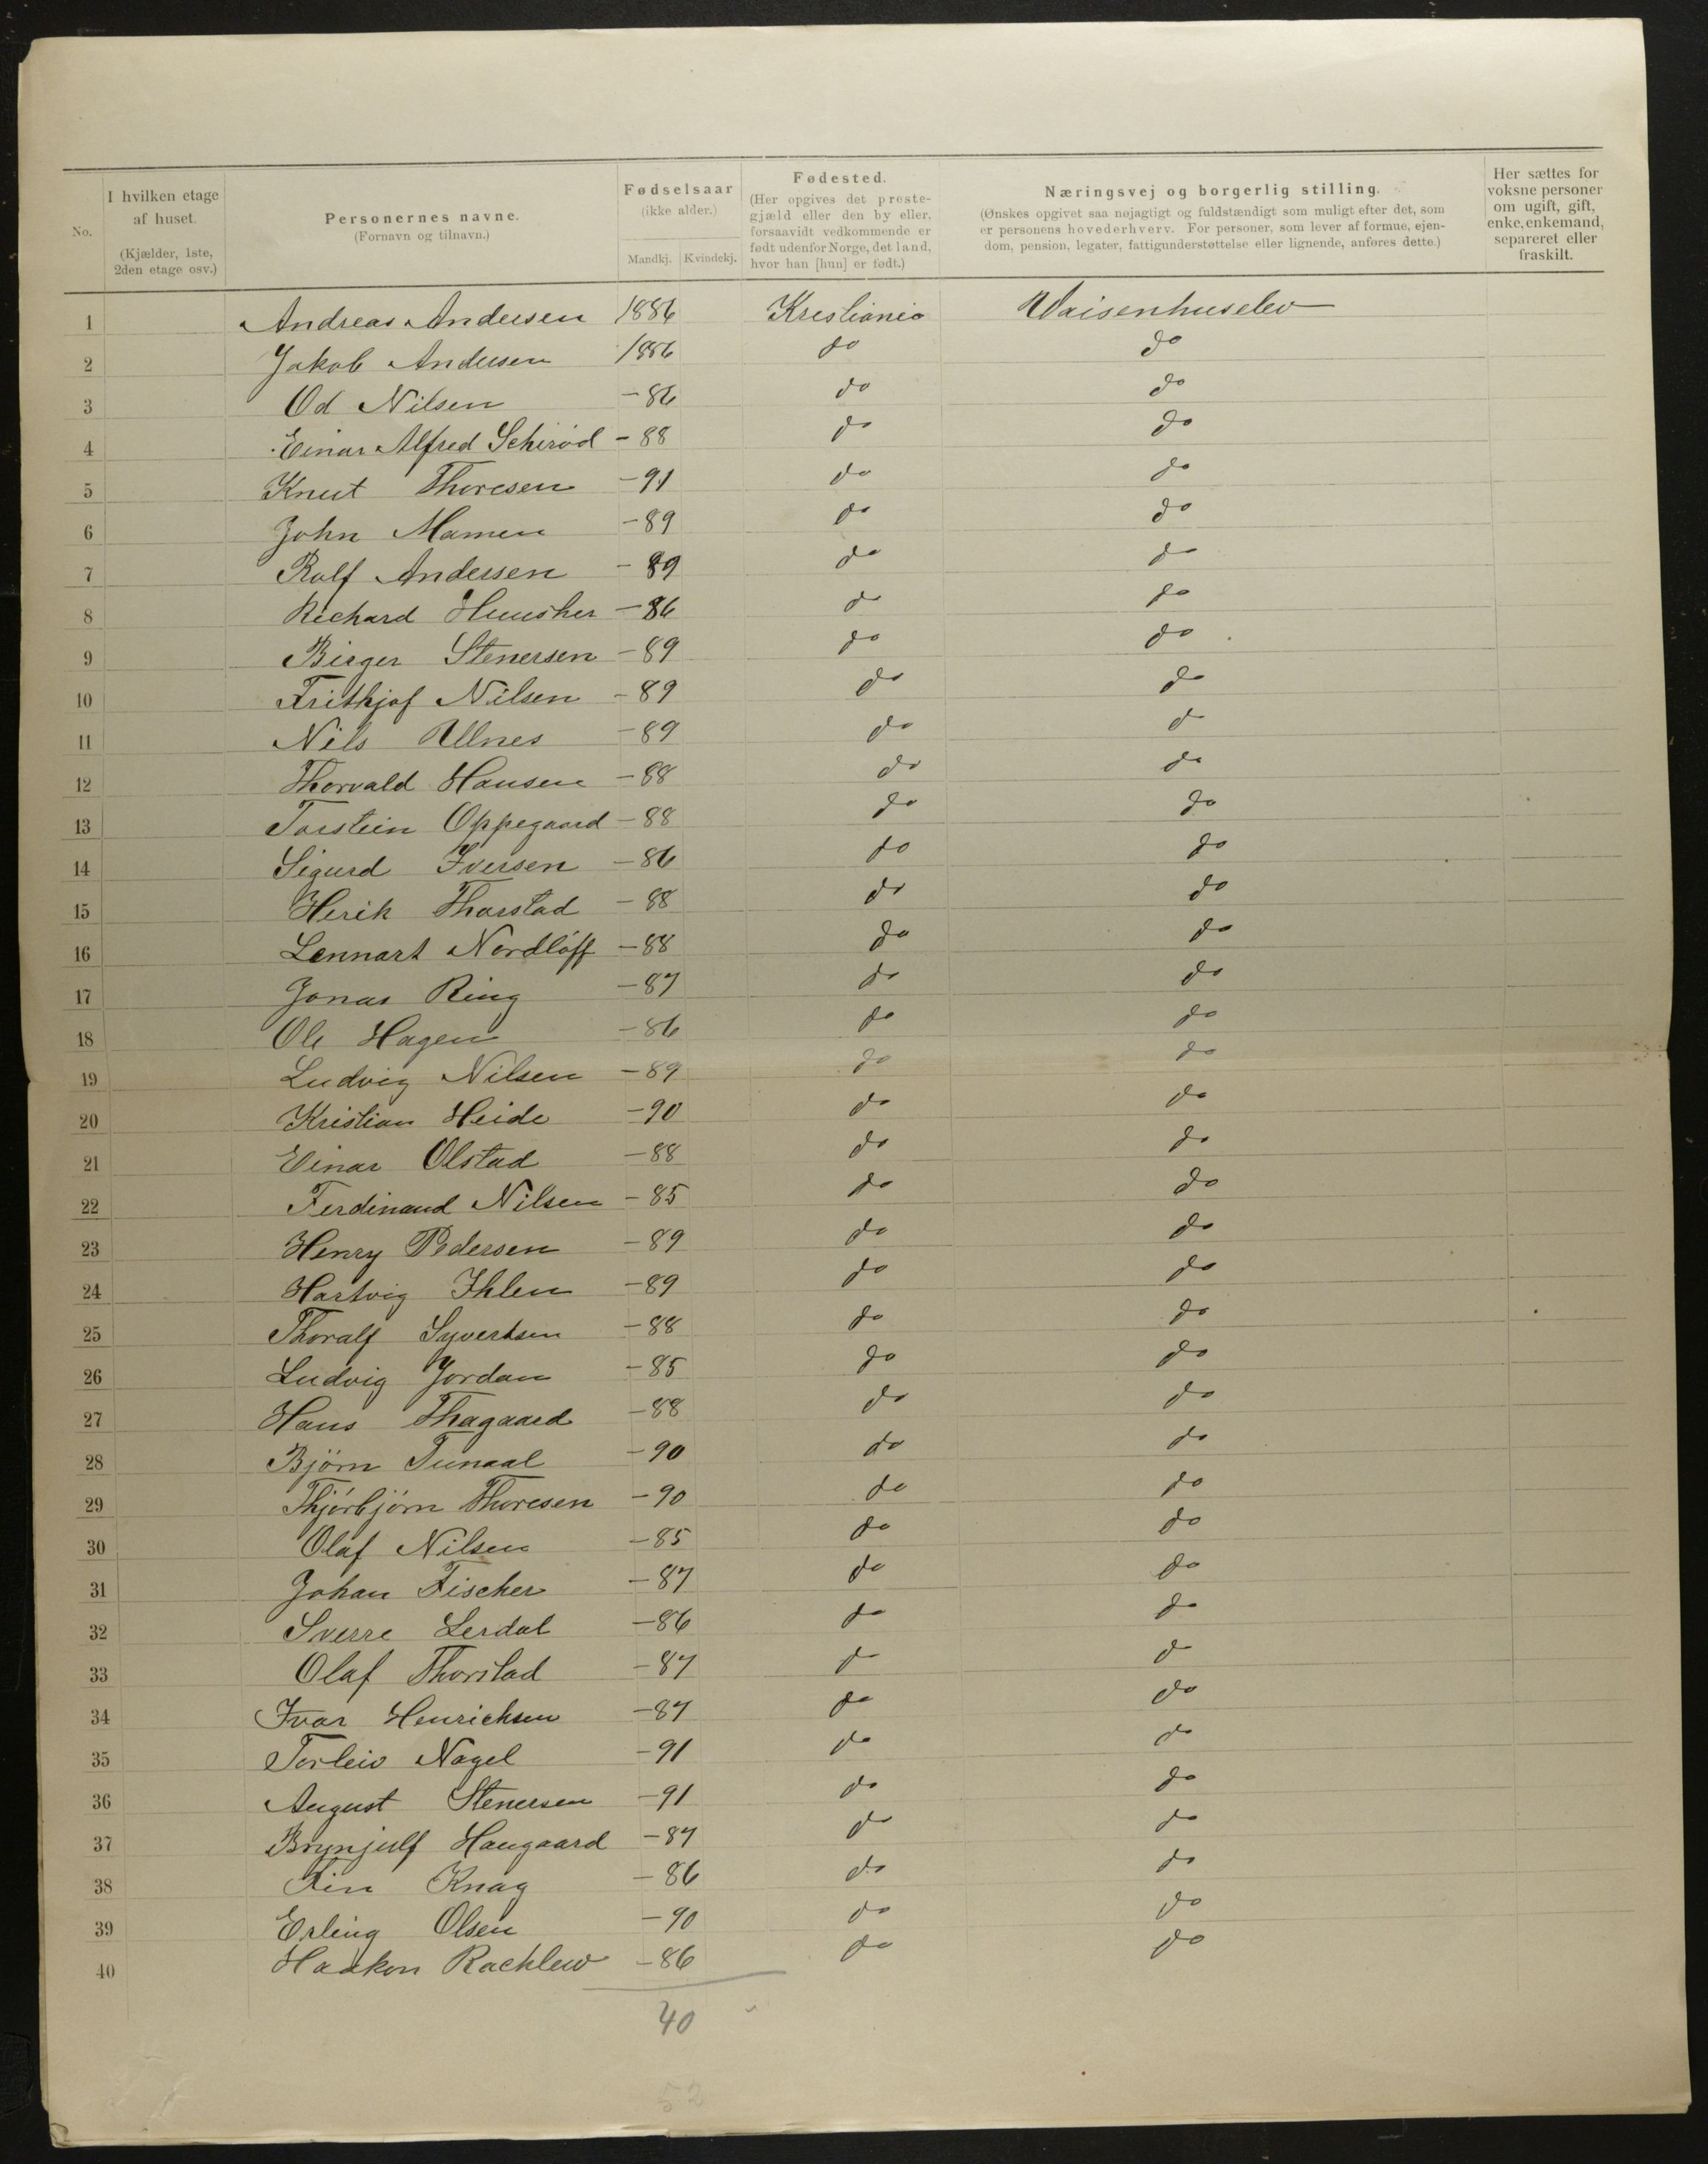 No.
I hvilken etage af huset. (Kjælder, 1ste, 2den etage osv.)
Personernes navne. (Fornavn og tilnavn.)
Fødselsaar (ikke alder.)
Mandkj. Kvindekj.
Fødested. (Her opgives det prestegjæld eller den by eller, forsaavidt vedkommende er født udenfor Norge, det land, hvor han [hun] er født.)
Næringsvej og borgerlig stilling. (Ønskes opgivet saa nøjagtigt og fuldstændigt som muligt efter det, som er personens hovederhverv. For personer, som lever af formue, ejendom, pension, legater, fattigunderstøttelse eller lignende, anføres dette.)
Her sættes for voksne personer om ugift, gift, enke, enkemand, separeret eller fraskilt.
1 Andreas Andersen 1886 Kristiania Waisenhuselev
2 Jakob Andersen 1886 do do
3 Od Nilsen -86 do do
4 Einar Alfred Schirød -88 do do
5 Knut Thoresen -91 do do
6 John Mamen -89 do do
7 Rolf Andersen -89 do do
8 Richard -86 do do
9 Birger Stenersen -89 do do
10 Frithjof Nilsen -89 do do
11 Nils Ullnes -89 do do
12 Thorvald Hansen -88 do do
13 Torstein Oppegaard -88 do do
14 Sigurd Iversen -86 do do
15 Herik Thorstad -88 do do
16 Lennart Nordlöff -88 do do
17 Jonas Ring -87 do do
18 Ole Hagen -86 do do
19 Ludvig Nilsen -89 do do
20 Kristian Heide -90 do do
21 Einar Olstad -88 do do
22 Ferdinand Nilsen -85 do do
23 Henry Pedersen -89 do do
24 Hartvig Ihlen -89 do do
25 Thoralf Syvertsen -88 do do
26 Ludvig Jordan -85 do do
27 Hans Thagaard -88 do do
28 Bjørn Tunaal -90 do do
29 Thjórbjörn Thoresen -90 do do
30 Olaf Nilsen -85 do do
31 Johan Fischer -87 do do
32 Sverre Lerdal -86 do do
33 Olaf Thorstad -87 do do
34 Ivar Henrichsen -87 do do
35 Torleiv Nagel -91 do do
36 August Stenersen -91 do do
37 Brynjulf Haugaard -87 do do
38 Fin Knag -86 do do
39 Erling Olsen -90 do do
40 Haakon Rachlew -86 do do
40
52